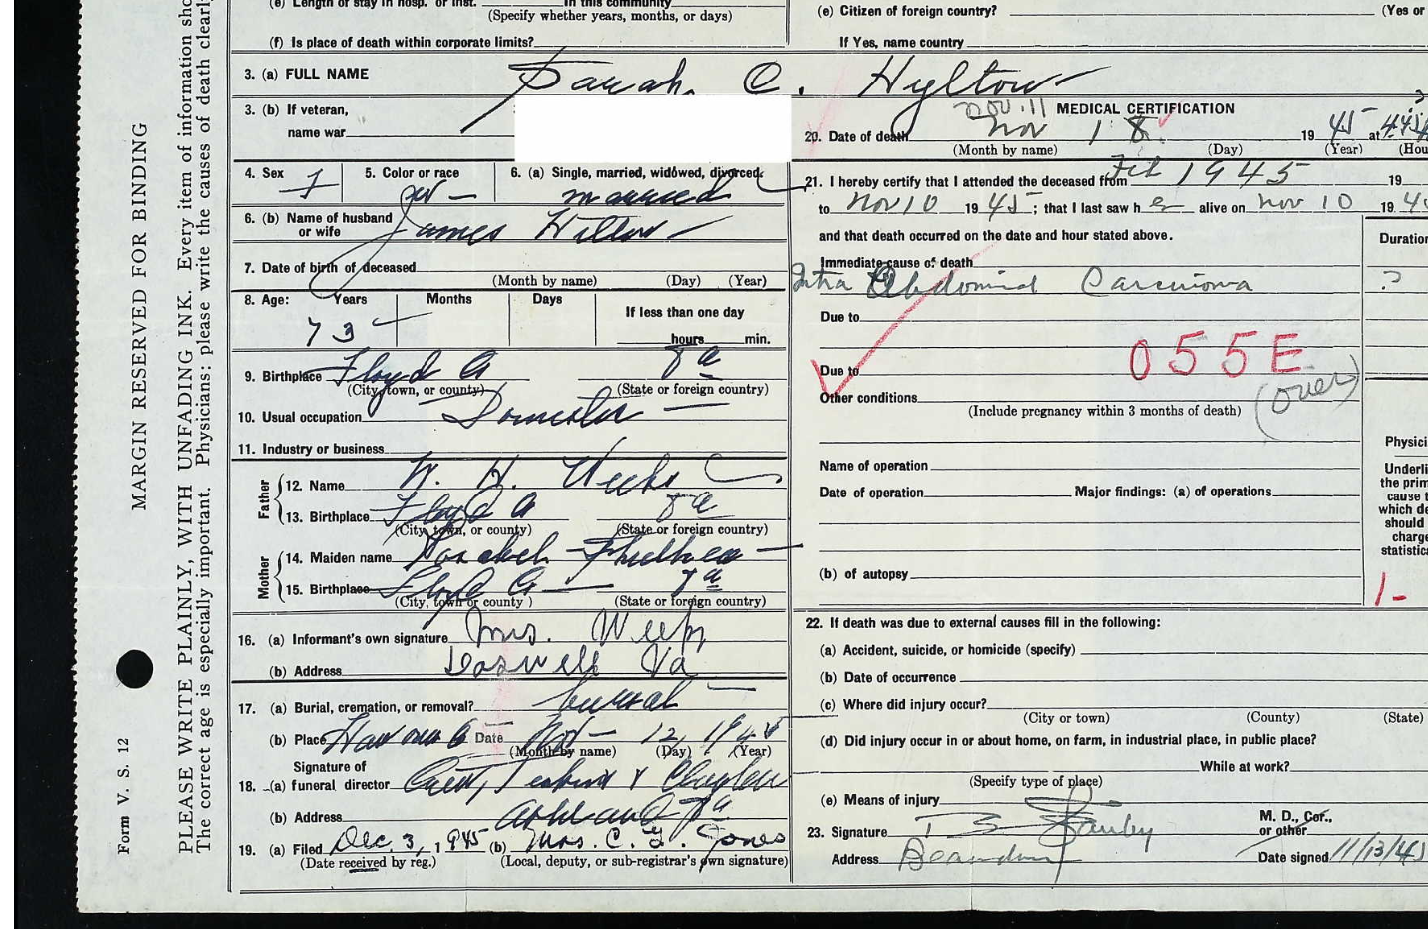 (e) Length of stay in hosp. or inst. In this community
(Specify whether years, months, or days)
(f) Is place of death within corporate limits?
3. (a) FULL NAME Sarah C. Hylton
3. (b) If veteran,
name war
4. Sex F
5. Color or race W
6. (a) Single, married, widowed, divorced married
6. (b) Name of husband or wife James Hilton
7. Date of birth of deceased
(Month by name) (Day) (Year)
8. Age: Years Months Days If less than one day
73 hours min.
9. Birthplace Floyd Co Va
(City, town, or county) (State or foreign country)
10. Usual occupation Domestic
11. Industry or business
Father
12. Name W. H. Weeks
13. Birthplace Floyd Co Va
(City, town, or county) (State or foreign country)
Mother
14. Maiden name
15. Birthplace Floyd Co Va
(City, town or county) (State or foreign country)
16. (a) Informant's own signature Mrs.
(b) Address Doswell Va
17. (a) Burial, cremation, or removal? burial
(b) Place Hanover Co Date Nov 12, 1945
(Month by name) (Day) (Year)
Signature of
18. (a) funeral director
(b) Address Ashland Va
19. (a) Filed Dec. 3, 1945 (b) Mrs. C. Jones
(Date received by reg.) (Local, deputy, or sub-registrar's own signature)
(e) Citizen of foreign country? (Yes or
If Yes, name country
MEDICAL CERTIFICATION
Nov. 11
20. Date of death Nov 18 1945 at
(Month by name) (Day) (Year) (Hou
21. I hereby certify that I attended the deceased from Feb 1945 19
to Nov 10 1945; that I last saw h alive on Nov 10 19
and that death occurred on the date and hour stated above.
Duration
Immediate cause of death
Intra Abdominal Carcinoma ?
Due to
Due to
055E
Other conditions (over)
(Include pregnancy within 3 months of death)
Physici
Name of operation
Date of operation Major findings: (a) of operations
(b) of autopsy
Underli
the prim
cause t
which de
should
charge
statistica
1-
22. If death was due to external causes fill in the following:
(a) Accident, suicide, or homicide (specify)
(b) Date of occurrence
(c) Where did injury occur?
(City or town) (County) (State)
(d) Did injury occur in or about home, on farm, in industrial place, in public place?
While at work?
(Specify type of place)
(e) Means of injury
23. Signature M. D., Cor., or other
Address Date signed 11/13/45
MARGIN RESERVED FOR BINDING
PLEASE WRITE PLAINLY, WITH UNFADING INK. Every item of information sho
The correct age is especially important. Physicians: please write the causes of death clearly
Form V. S. 12